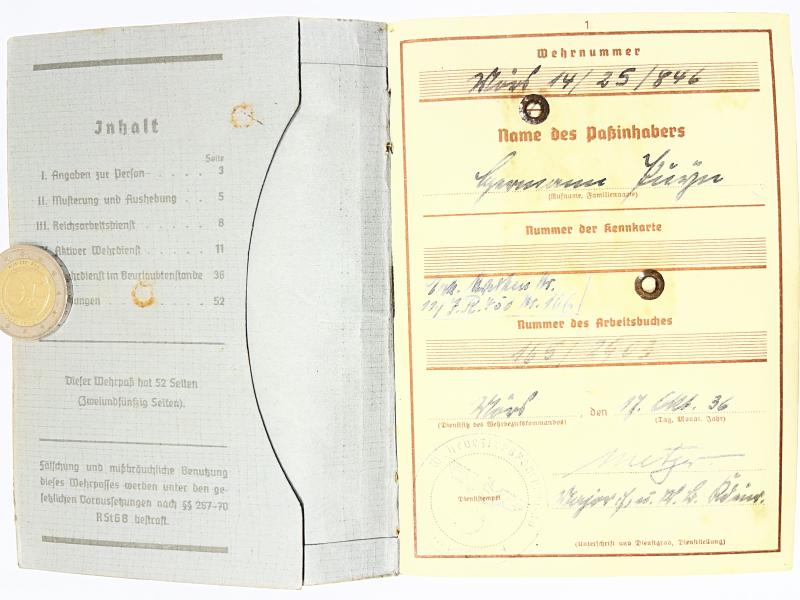 Inhalt
Seite
I. Angaben zur Person 3
II. Musterung und Aushebung . . . 5
III. Reichsarbeitsdienst . . . . 8
Aktiver Wehrdienst . . . . 11
im Beurlaubtenstande 36
52
Dieser Wehrpaß hat 52 Seiten
(Zweiundfünfzig Seiten).
Fälschung und mißbräuchliche Benutzung
dieses Wehrpasses werden unter den ge-
setzlichen Voraussetzungen nach §§ 267-70
RStGB bestraft.
1
Wehrnummer
Mörs 14/25/846
Name des Paßinhabers
Hermann
(Rufname, Familienname)
Nummer der Kennkarte
Nummer des Arbeitsbuches
Mörs, den 17. Okt. 36
(Dienstsitz des Wehrbezirkskommandos) (Tag, Monat, Jahr)
Metzger
Dienststempel
Major
(Unterschrift und Dienstgrad, Dienststellung)